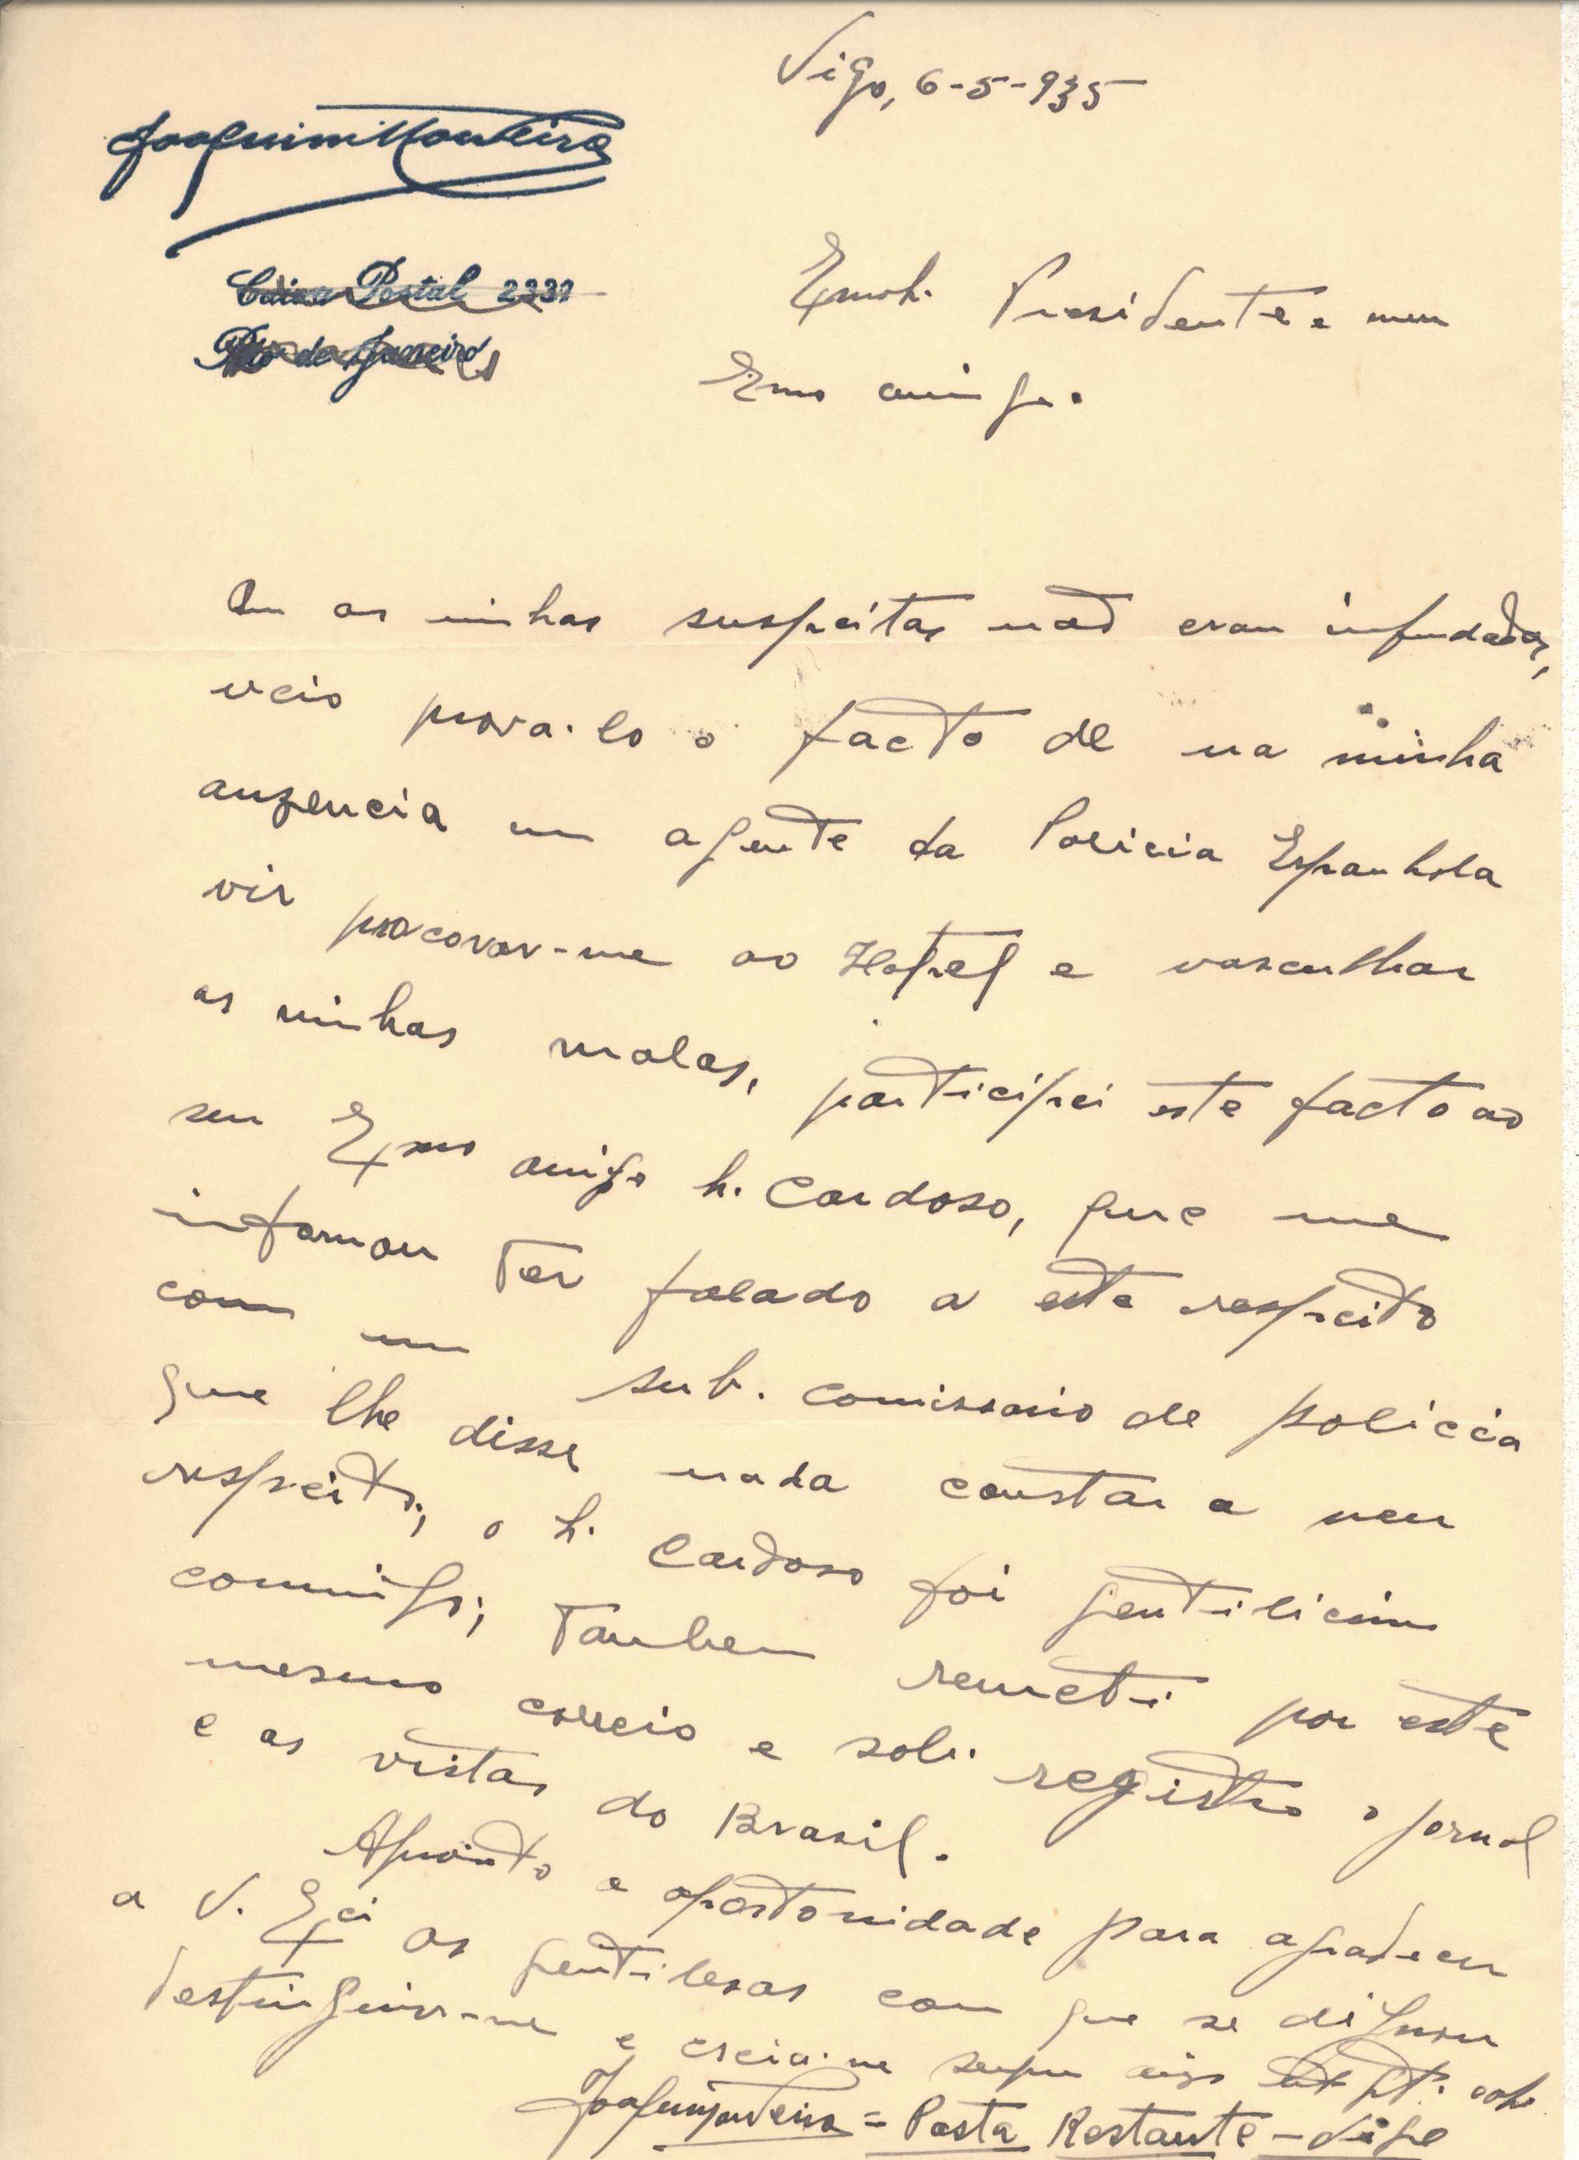 Vigo, 6-5-935
Joaquim Monteiro
Caixa Postal 2331
Rio de Janeiro
Presidente e meu
Exmo amigo.
Que as minhas suspeitas naõ eram infundadas,
veio prova-lo o facto de na minha
auzencia um agente da Policia Espanhola
vir procorar-me ao Hotel e vasculhar
as minhas malas, participei este facto ao
seu Exmo amigo Sr. Cardoso, que me
informou ter falado a este respeito
com um sub. comissario de policia
que lhe disse nada constar a meu
respeito; o Sr. Cardoso foi gentilicimo
commigo; tambem remeti por este
mesmo correio e sob. registro o jornal
e as vistas do Brasil.
Aproveito a oportonidade para agradecer
a V. Exci as gentilesas com que se dignou
destinguir-me e creia-me sempre amigo
Joaquim Monteiro = Posta Restante - Vigo